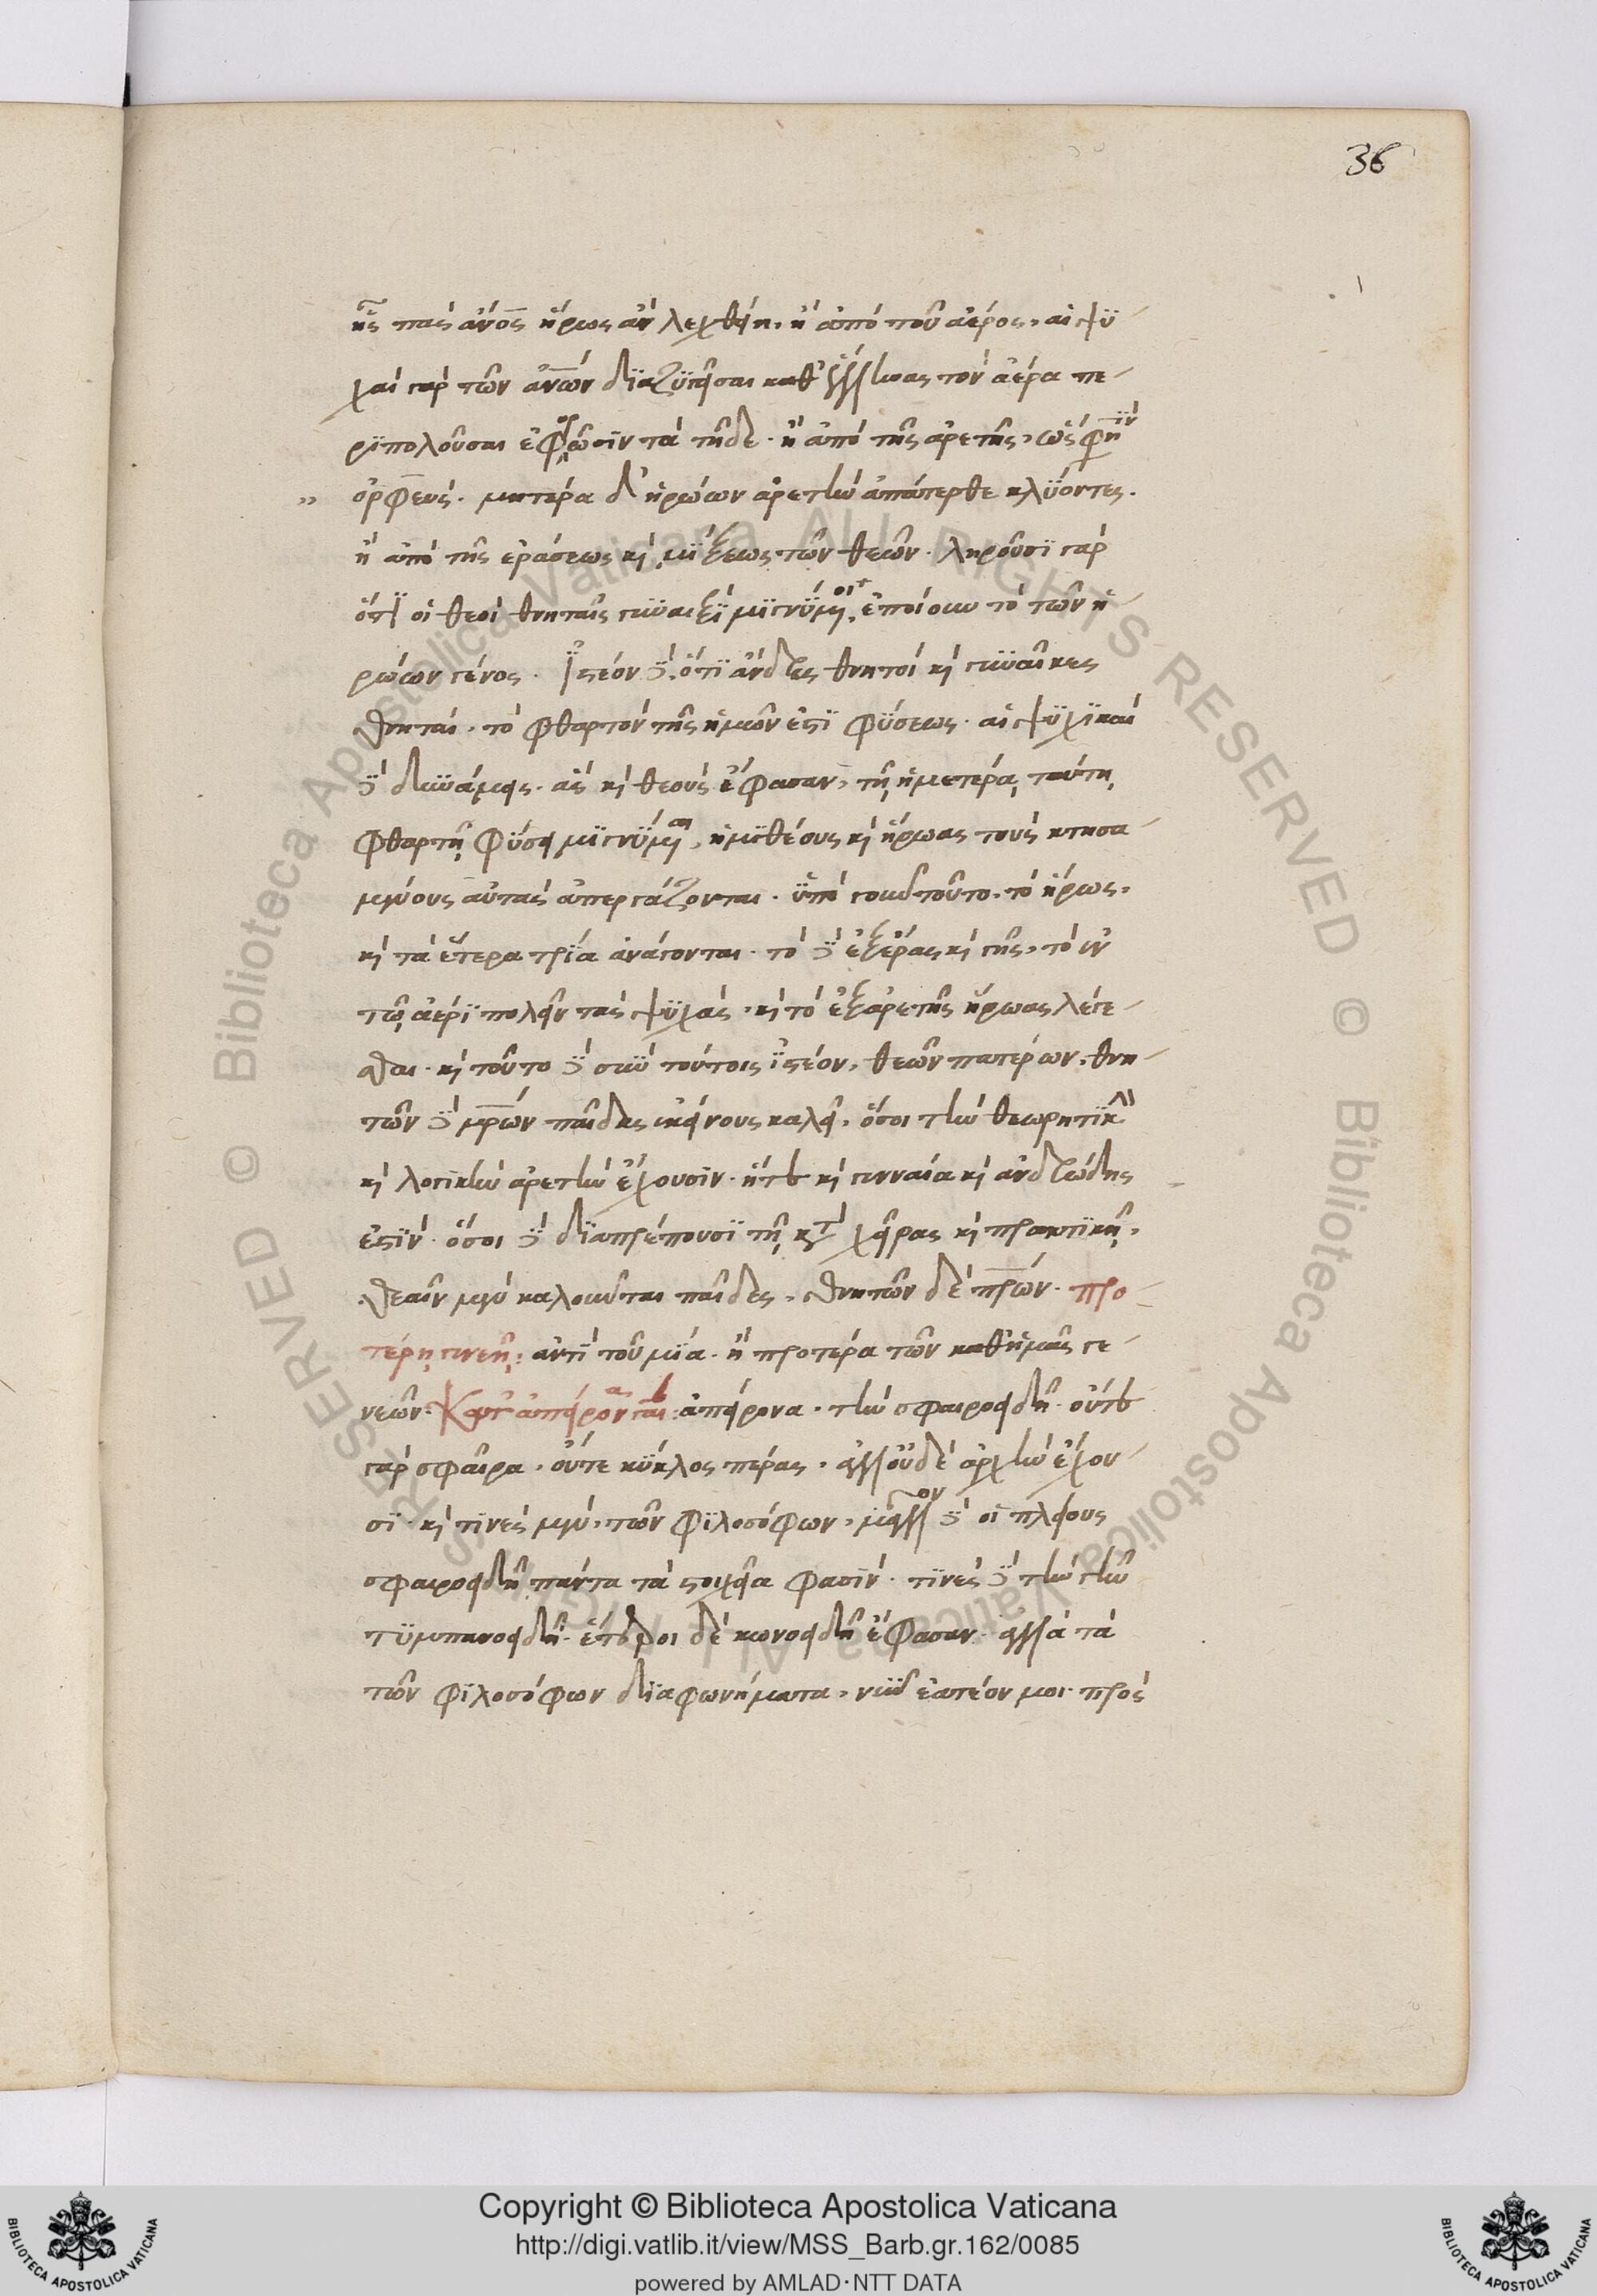 36
ἧς πᾶς ἄνος ἥρως ἂν λεχθείη. ἢ ἀπὸ τοῦ ἀέρος. αἱ ψυ
χαὶ γὰρ τῶν ἀνων διαζυγεῖσαι καθ' Ἕλληνας τὸν ἀέρα πε
ριπολοῦσαι ἐφορῶσιν τὰ τῇδε. ἢ ἀπὸ τῆς ἀρετῆς, ὥς φησιν
ὀρφεύς. μητέρα δ' ἡρώων ἀρετὴν ἀπάτερθε κλύοντες.
ἢ ἀπὸ τῆς ἐράσεως καὶ μίξεως τῶν θεῶν. ληροῦσι γὰρ
ὅτι οἱ θεοὶ θνηταῖς γυναιξὶ μιγνύμενοι, ἐποίουν τὸ τῶν ἡ
ρώων γένος. Ἰστέον δὲ ὅτι ἄνδρες θνητοὶ καὶ γυναῖκες
θνηταὶ, τὸ φθαρτὸν τῆς ἡμῶν ἐστι φύσεως. αἱ ψυχικαὶ
δὲ δυνάμεις. ἃς καὶ θεοὺς ἔφασαν, τῇ ἡμετέρᾳ ταύτῃ
φθαρτῇ φύσει μιγνύμεναι, ἡμιθέους καὶ ἥρωας τοὺς κτησα
μένους αὐτὰς ἀπεργάζονται. ὑπὸ γοῦν τοῦτο. τὸ ἥρως,
καὶ τὰ ἕτερα τρία ἀνάγονται. τὸ δὲ ἐξ ἔρας καὶ γῆς, τὸ ἐν
τῷ ἀέρι πολεῖν τὰς ψυχάς. καὶ τὸ ἐξ ἀρετῆς ἥρωας λέγε
σθαι. καὶ τοῦτο δὲ σὺν τούτοις ἰστέον, θεῶν πατέρων, θνη
τῶν δὲ μρων παῖδας ἐκείνους καλεῖ, ὅσοι τὴν θεωρητικὴν
καὶ λογικὴν ἀρετὴν ἔχουσιν. ἥτις καὶ γενναία καὶ ἀνδρώδης
ἐστίν. ὅσοι δὲ διαπρέπουσι τῇ κατὰ χεῖρας καὶ πρακτικῇ,
θεαῖν μὲν καλοῦνται παῖδες, θνητῶν δὲ πρων. προ
τέρῃ γενεῇ: ἀντὶ τοῦ μία. ἢ προτέρα τῶν καθ' ἡμᾶς γε
νεῶν. Κατ' ἀπείρονα γαῖαν: ἀπείρονα. τὴν σφαιροειδῆ. οὔτε
γὰρ σφαῖρα, οὔτε κύκλος πέρας, ἀλλ' οὐδὲ ἀρχὴν ἔχου
σι. καὶ τινὲς μὲν, τῶν φιλοσόφων, μᾶλλον δὲ οἱ πλείους
σφαιροειδῆ πάντα τὰ στοιχεῖα φασίν. τινὲς δὲ τὴν γῆν
τυμπανοειδῆ. ἕτεροι δὲ κωνοειδῆ ἔφασαν. ἀλλὰ τὰ
τῶν φιλοσόφων διαφωνήματα, νῦν ἐατέον μοι. πρὸς
Copyright © Biblioteca Apostolica Vaticana
http://digi.vatlib.it/view/MSS_Barb.gr.162/0085
powered by AMLAD·NTT DATA